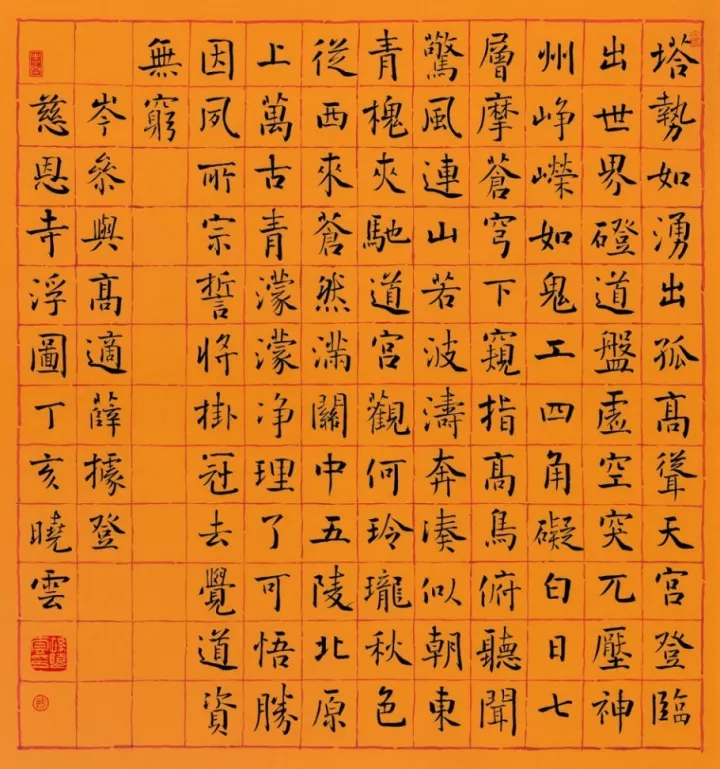 塔勢如湧出孤髙聳天宮登臨
出世界磴道盤虛空突兀壓神
州崢嶸如鬼工四角礙白日七
層摩蒼穹下窺指髙鳥俯聽聞
驚風連山若波濤奔湊似朝東
青槐夾馳道宮觀何玲瓏秋色
從西來蒼然滿關中五陵北原
上萬古青濛濛净理了可悟勝
因夙所宗誓將掛冠去覺道資
無窮
岑參與髙適薛據登
慈恩寺浮圖丁亥曉雲